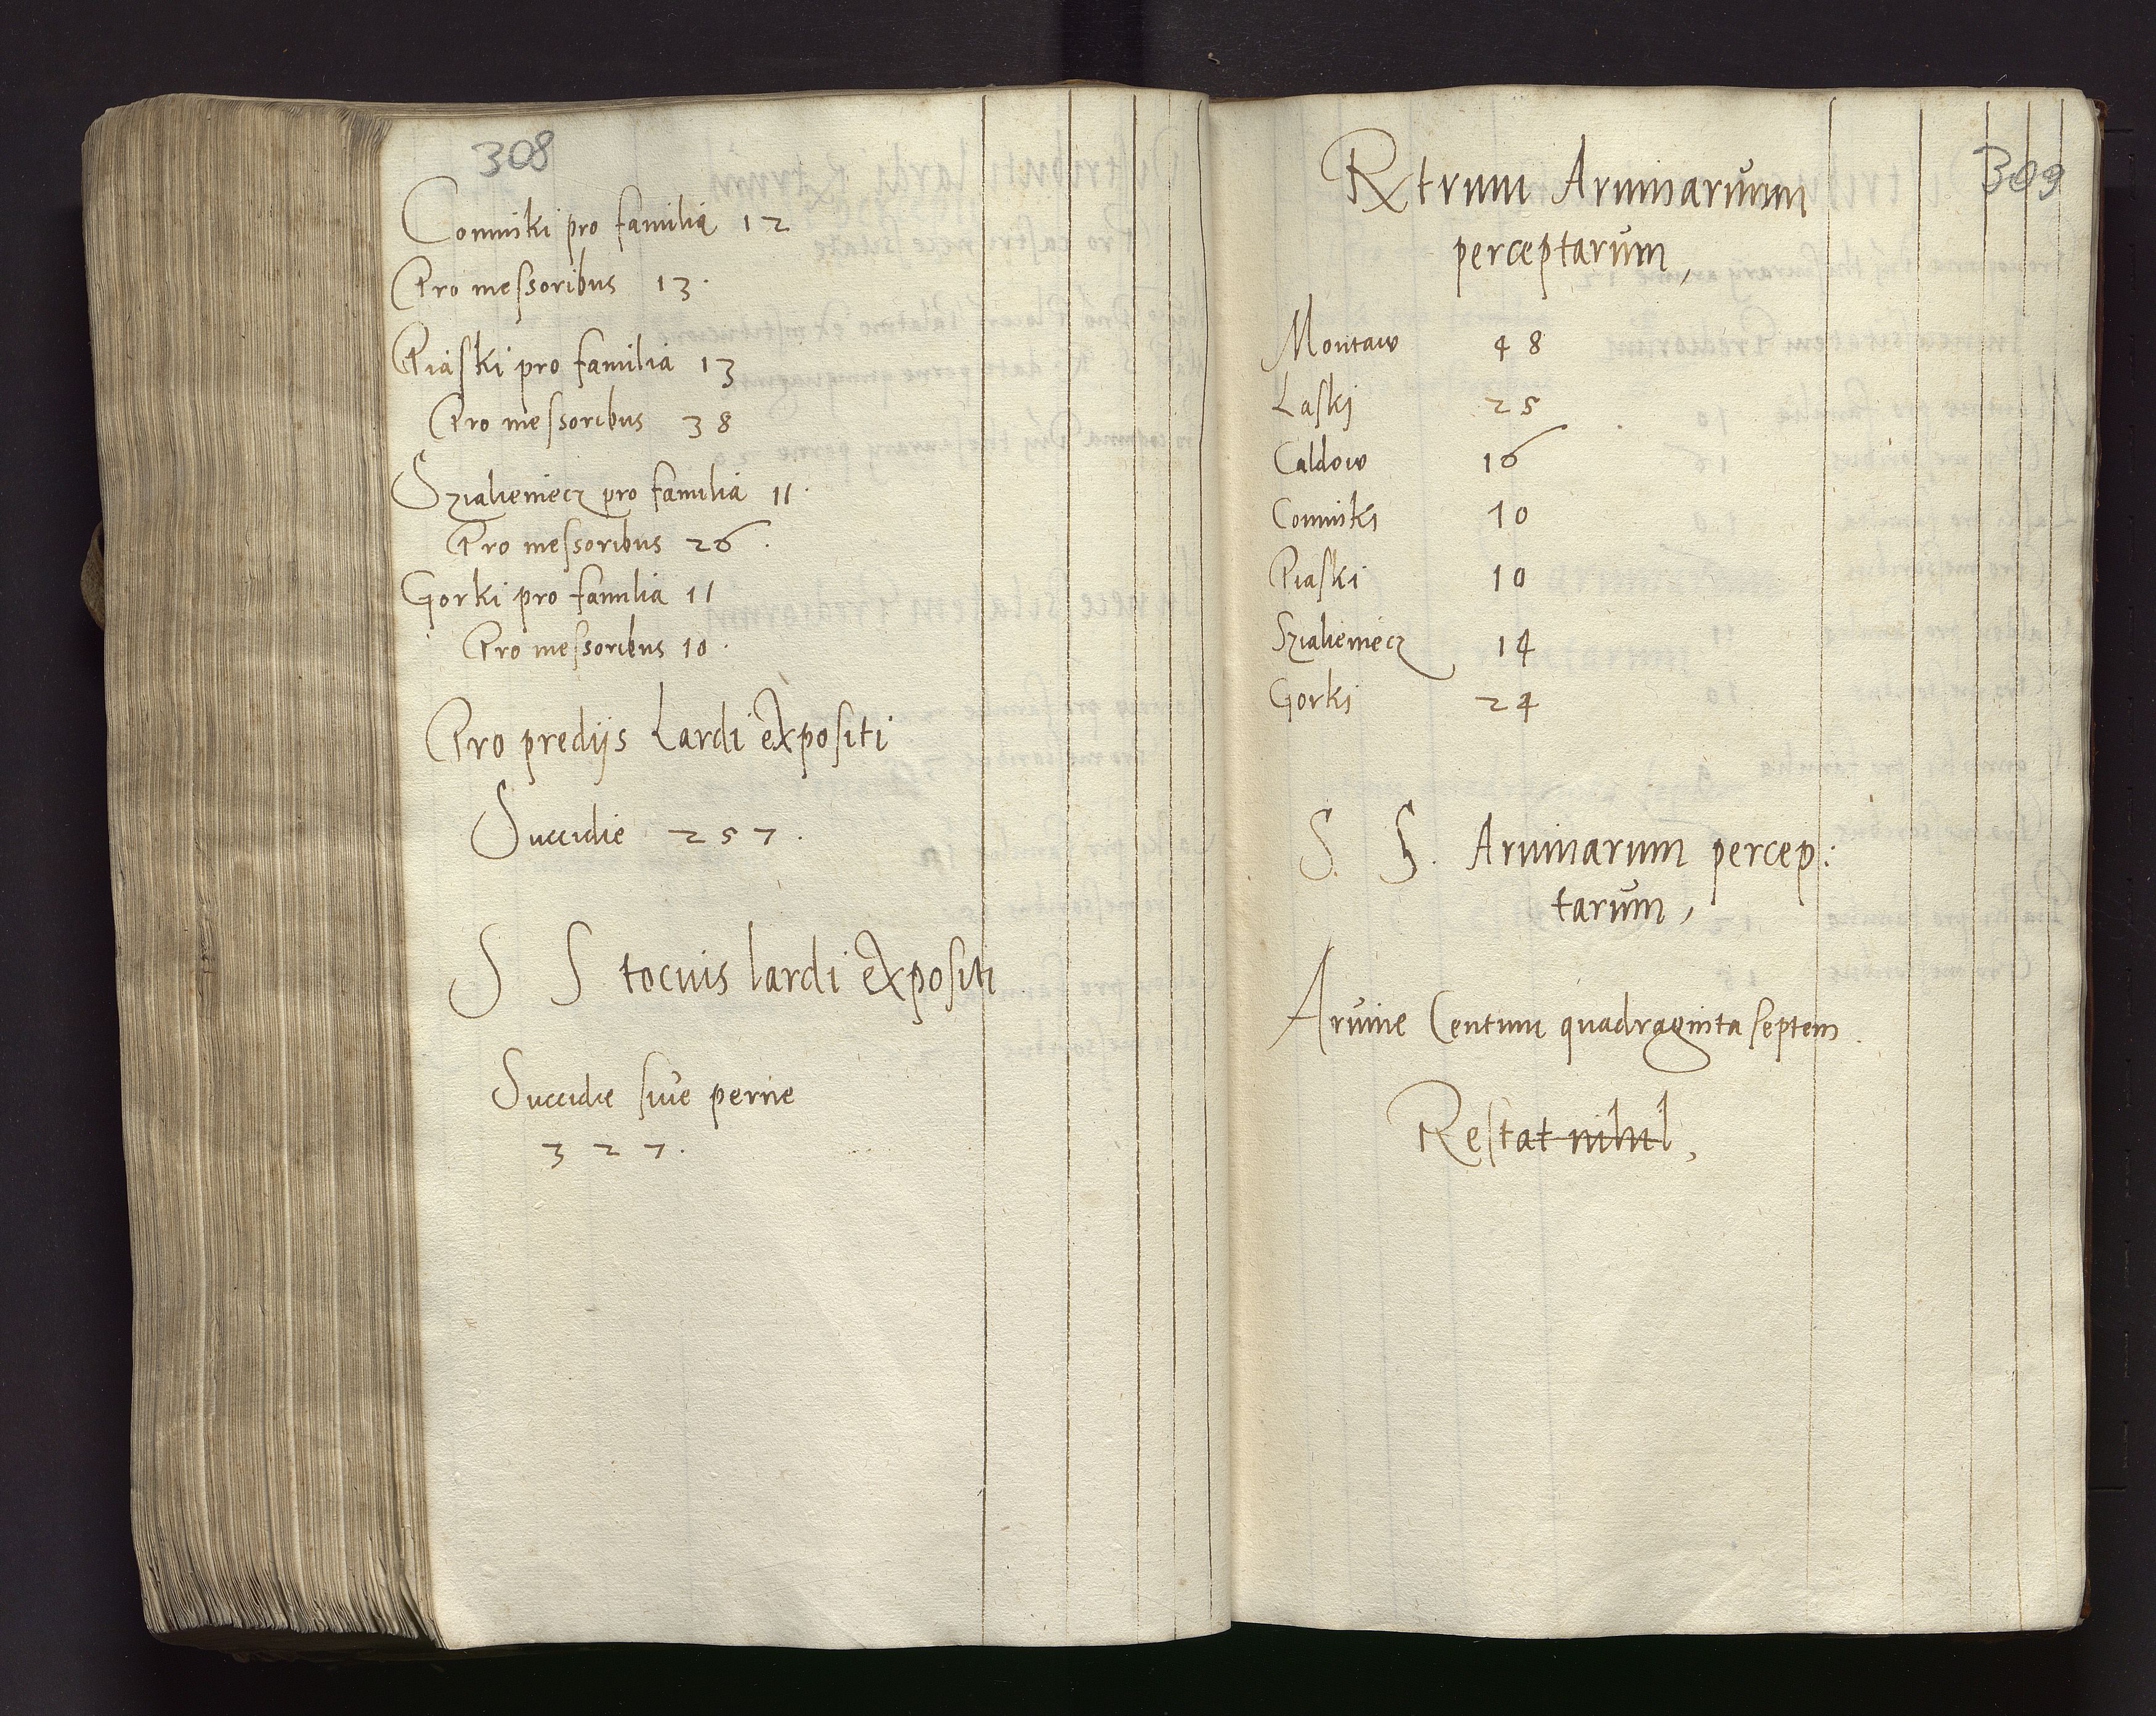 308
Comniski pro familia 12
Pro messoribus 13.
Piaski pro familia 13
Pro messoribus 38
Szialieniecz pro familia 11.
Pro messoribus 26.
Gorki pro familia 11
Pro messoribus 10.
Pro predijs Lardi expositi
Succidie 257.
S S tocius lardi expositi
Succidie siue perne
327.
309
Rtrum Aruinarum
perceptarum,
Montaw 48
Laskj 25
Caldow 16
Comniski 10
Piaski 10
Szialieniecz 14
Gorki 24
S. S. Aruinarum percep:
tarum,
Aruine Centum quadraginta septem.
Restat nihil,